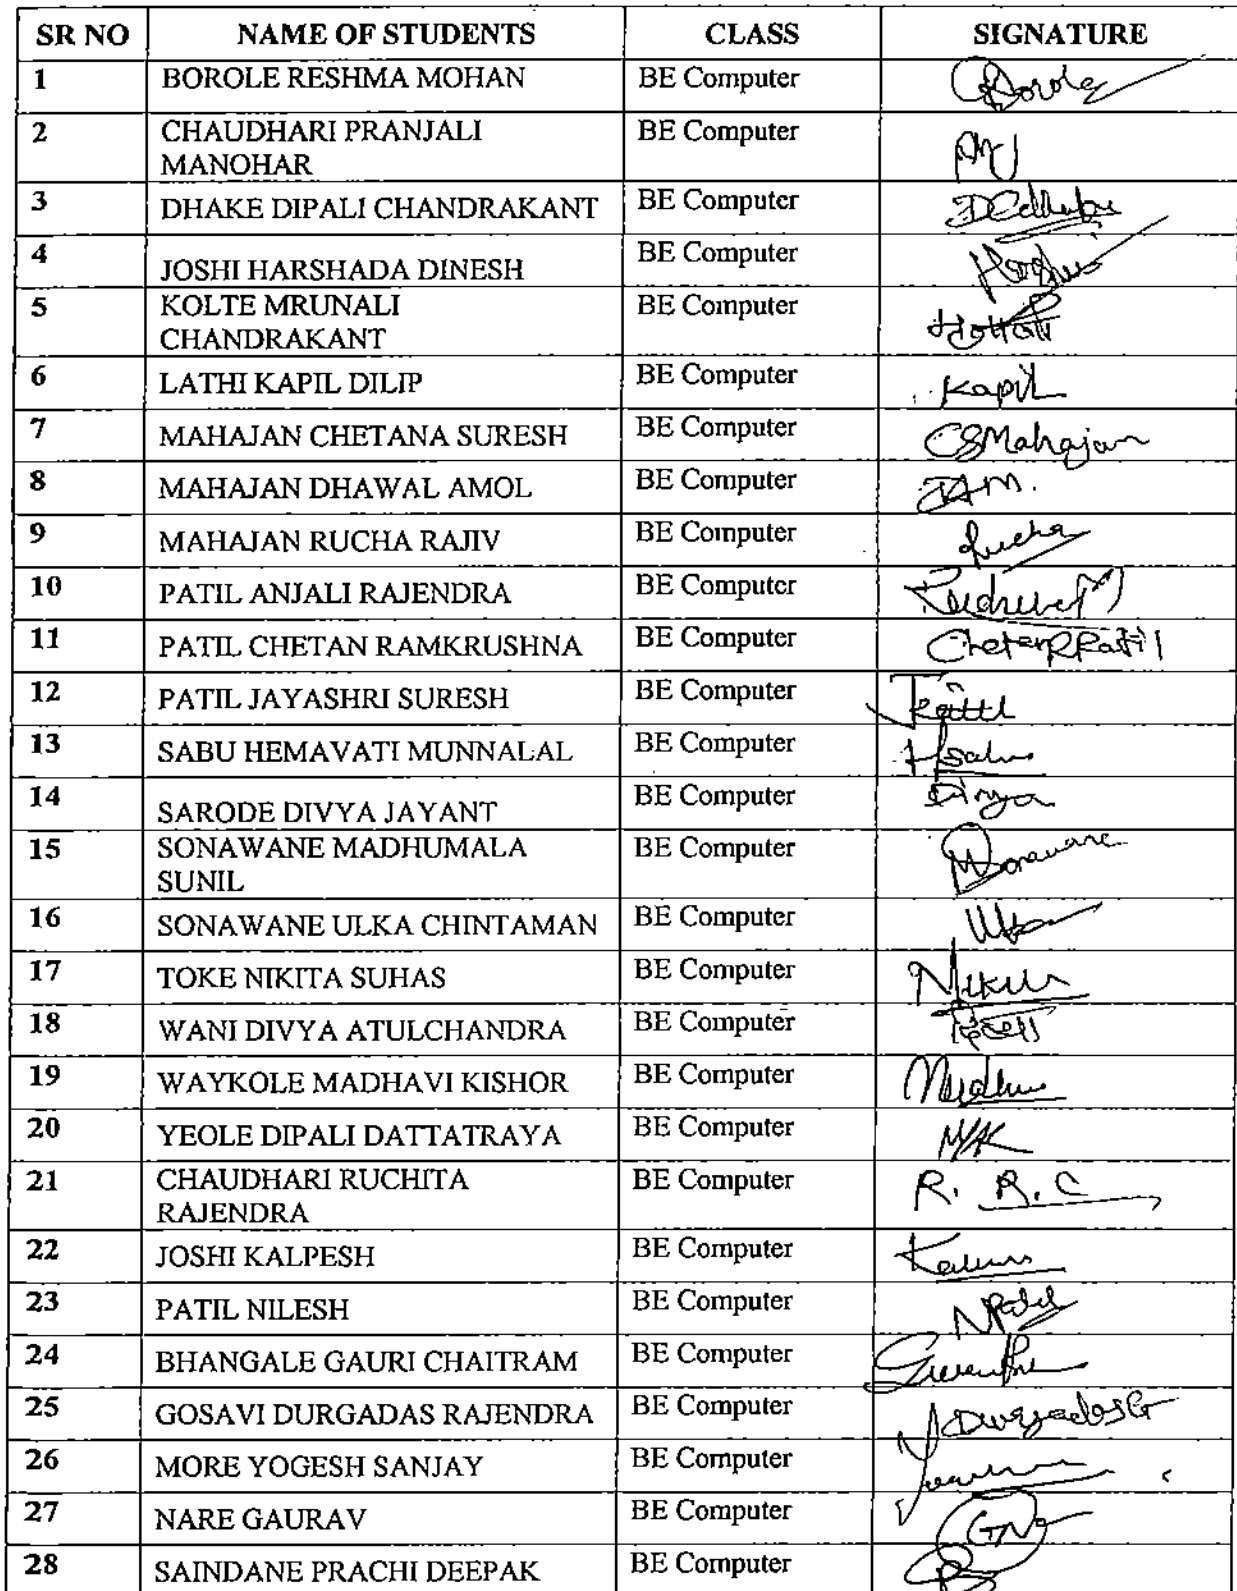 SR NO NAME OF STUDENTS CLASS SIGNATURE
1 BOROLE RESHMA MOHAN BE Computer Borole
2 CHAUDHARI PRANJALI BE Computer
MANOHAR
3 DHAKE DIPALI CHANDRAKANT BE Computer
4 JOSHI HARSHADA DINESH BE Computer
5 KOLTE MRUNALI BE Computer
CHANDRAKANT
6 LATHI KAPIL DILIP BE Computer Kapil
7 MAHAJAN CHETANA SURESH BE Computer CSMahajan
8 MAHAJAN DHAWAL AMOL BE Computer
9 MAHAJAN RUCHA RAJIV BE Computer Rucha
10 PATIL ANJALI RAJENDRA BE Computer
11 PATIL CHETAN RAMKRUSHNA BE Computer ChetanRPatil
12 PATIL JAYASHRI SURESH BE Computer
13 SABU HEMAVATI MUNNALAL BE Computer
14 SARODE DIVYA JAYANT BE Computer Divya
15 SONAWANE MADHUMALA BE Computer
SUNIL
16 SONAWANE ULKA CHINTAMAN BE Computer
17 TOKE NIKITA SUHAS BE Computer
18 WANI DIVYA ATULCHANDRA BE Computer
19 WAYKOLE MADHAVI KISHOR BE Computer
20 YEOLE DIPALI DATTATRAYA BE Computer
21 CHAUDHARI RUCHITA BE Computer R. R. C
RAJENDRA
22 JOSHI KALPESH BE Computer
23 PATIL NILESH BE Computer NPatil
24 BHANGALE GAURI CHAITRAM BE Computer
25 GOSAVI DURGADAS RAJENDRA BE Computer DurgadasG
26 MORE YOGESH SANJAY BE Computer
27 NARE GAURAV BE Computer GN
28 SAINDANE PRACHI DEEPAK BE Computer